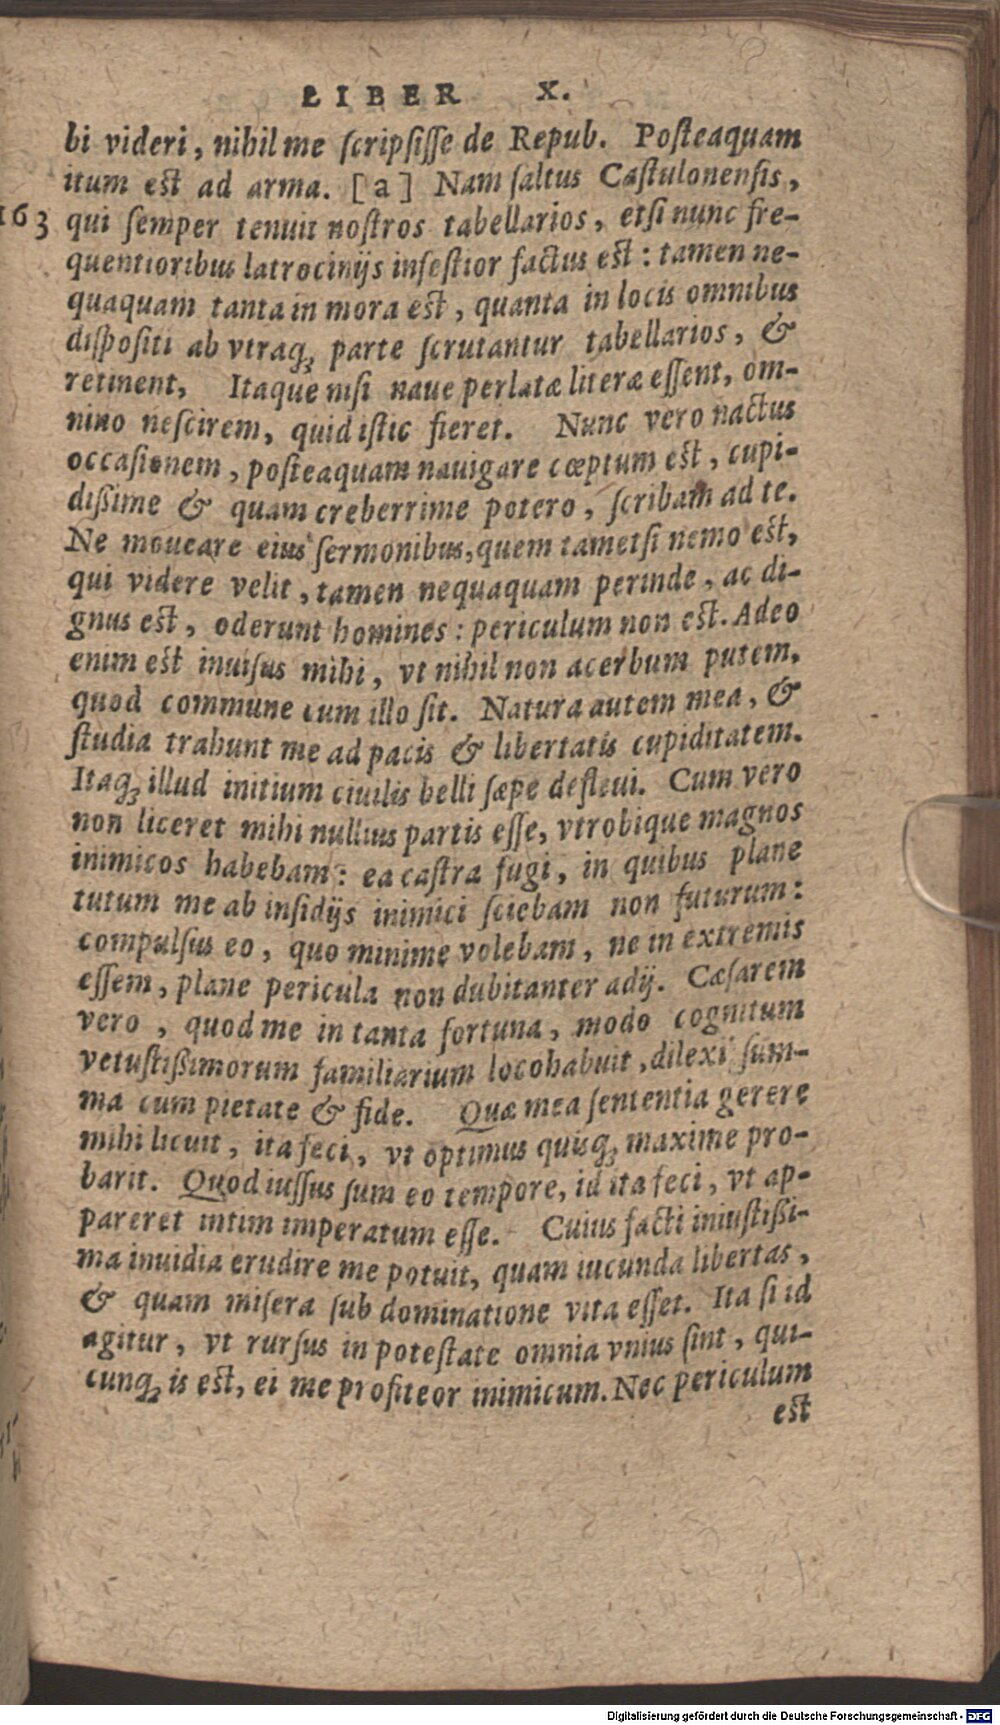 LIBER X.
bi videri, nihil me ſcripſiſſe de Repub. Poſteaquam
itum est ad arma. [a] Nam ſaltus Caſtulonenſis,
163 qui ſemper tenuit noſtros tabellarios, etſi nunc fre-
quentioribus latrocinijs infeſtior factus est: tamen ne-
quaquam tanta in mora est, quanta in locis omnibus
diſpoſiti ab vtraq; parte ſcrutantur tabellarios, &
retinent, Itaque niſi naue perlatæ literæ eſſent, om-
nino neſcirem, quid iſtic fieret. Nunc vero nactus
occaſionem, poſteaquam nauigare cœptum est, cupi-
diſſime & quam creberrime potero, ſcribam ad te.
Ne moueare eius ſermonibus, quem tametſi nemo est,
qui videre velit, tamen nequaquam perinde, ac di-
gnus est, oderunt homines: periculum non est. Adeo
enim est inuiſus mihi, vt nihil non acerbum putem,
quod commune cum illo ſit. Natura autem mea, &
ſtudia trahunt me ad pacis & libertatis cupiditatem.
Itaq; illud initium ciuilis belli ſæpe defleui. Cum vero
non liceret mihi nullius partis eſſe, vtrobique magnos
inimicos habebam: ea caſtra fugi, in quibus plane
tutum me ab inſidijs inimici ſciebam non futurum:
compulſus eo, quo minime volebam, ne in extremis
eſſem, plane pericula non dubitanter adij. Cæſarem
vero, quod me in tanta fortuna, modo cognitum
vetuſtiſſimorum familiarium loco habuit, dilexi ſum-
ma cum pietate & fide. Quæ mea ſententia gerere
mihi licuit, ita feci, vt optimus quiſq; maxime pro-
barit. Quod iuſſus ſum eo tempore, id ita feci, vt ap-
pareret intim imperatum eſſe. Cuius facti iniuſtiſſi-
ma inuidia erudire me potuit, quam iucunda libertas,
& quam miſera ſub dominatione vita eſſet. Ita ſi id
agitur, vt rurſus in poteſtate omnia vnius ſint, qui-
cunq; is est, ei me profiteor inimicum. Nec periculum
est
Digitalisierung gefördert durch die Deutsche Forschungsgemeinschaft - DFG